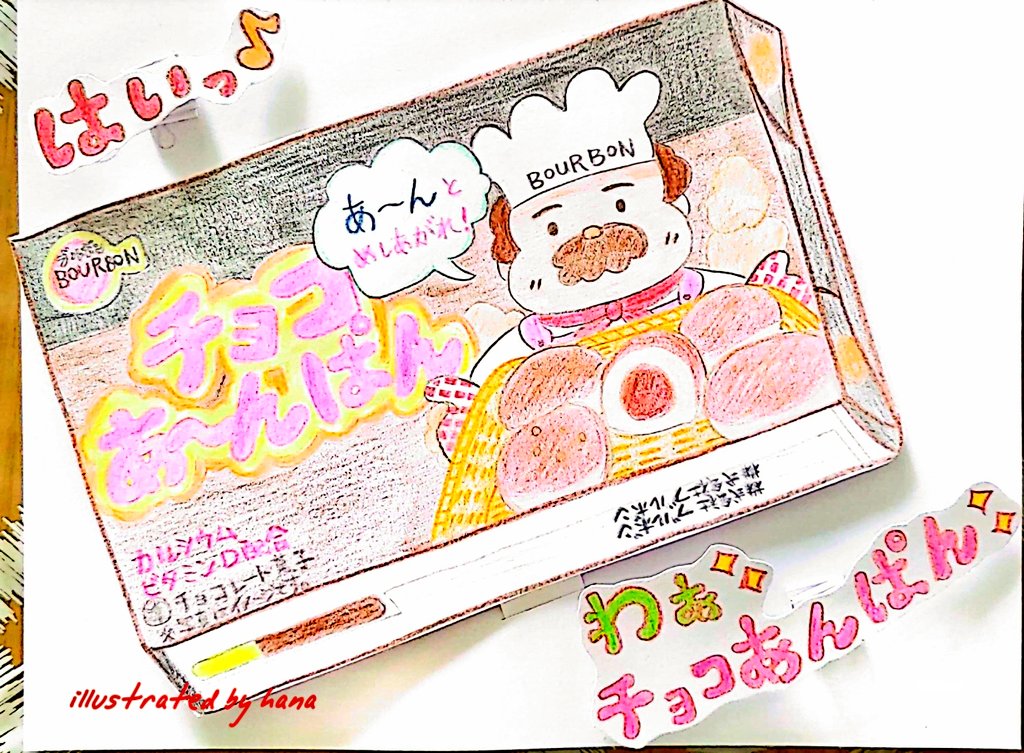 はいっ♪
BOURBON
あ〜んと
めしあがれ!
BOURBON
チョコ
あ〜んぱん
カルシウム
ビタミンD配合
チョコレート菓子
株式会社ブルボン
株式会社ブルボン
わぁ
チョコあんぱん
illustrated by hana